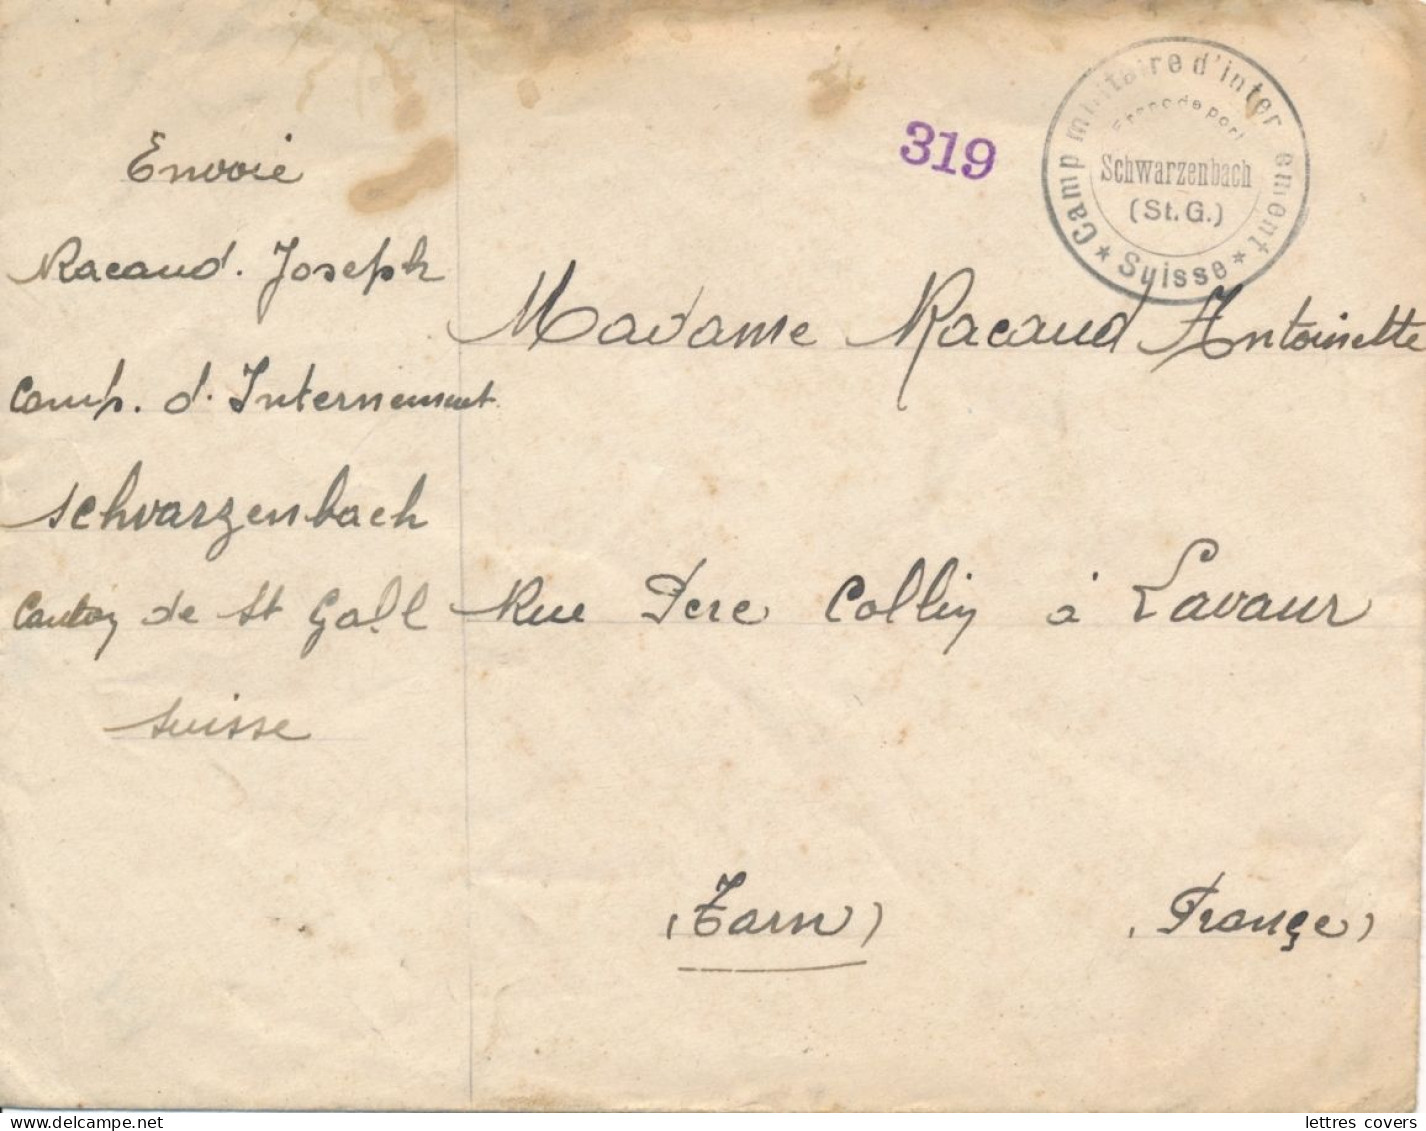 Envoie
Racaud. Joseph
Camp. d. Internement
Schvarzenbach
Canton de St Gall
Suisse
319
Camp militaire d'inter ement
Franc de port
Schwarzenbach
(St. G.)
★ Suisse ★
Madame Racaud Antoinette
Rue Pere Colliy à Lavaur
(Tarn) (Françe)
lettres covers